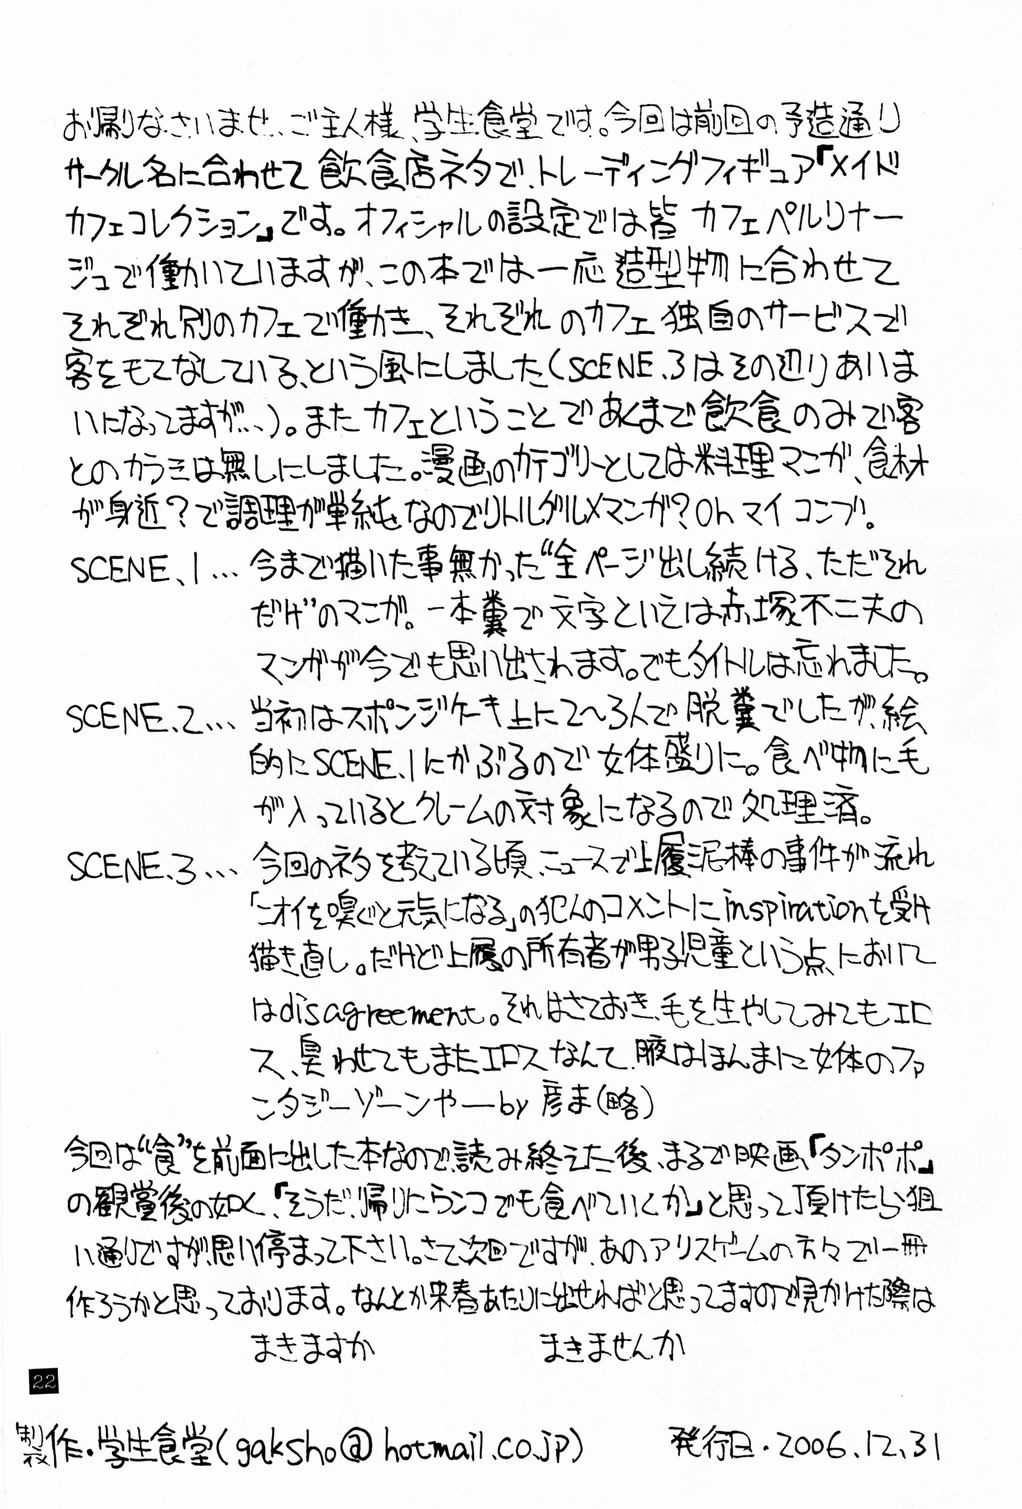 お帰りなさいませ、ご主人様、学生食堂です。今回は前回の予造通り
サークル名に合わせて飲食店ネタで、トレーディングフィギュア「メイド
カフェコレクション」です。オフィシャルの設定では皆カフェペルリナー
ジュで働いていますが、この本では一応造型物に合わせて
それぞれ別のカフェで働き、それぞれのカフェ独自のサービスで
客をもてなしている、という風にしました(SCENE.3はその辺りあいま
いになってますが…)。またカフェということであくまで飲食のみで客
とのカラミは無しにしました。漫画のカテゴリーとしては料理マンガ、食材
が身近?で調理が単純なのでリトルグルメマンガ?Ohマイコンブ。
SCENE.1… 今まで描いた事無かった“全ページ出し続ける、ただそれ
だけ”のマンガ。一本糞で文字といえば赤塚不二夫の
マンガが今でも思い出されます。でもタイトルは忘れました。
SCENE.2… 当初はスポンジケーキ上に2〜3人で脱糞でしたが、絵
的にSCENE.1にかぶるので女体盛りに。食べ物に毛
が入っているとクレームの対象になるので処理済。
SCENE.3… 今回のネタを考えている頃、ニュースで上履泥棒の事件が流れ
「ニオイを嗅ぐと元気になる」の犯人のコメントにinspirationを受け
描き直し。だけど上履の所有者が男子児童という点、において
はdisagreement。それはさておき、毛を生やしてみてもエロ
ス、臭わせてもまたエロスなんて、腋はほんまに女体のファ
ンタジーゾーンやーby 彦ま(略)
今回は“食”を前面に出した本なので、読み終えた後、まるで映画「タンポポ」
の観賞後の如く、「そうだ、帰りにウンコでも食べていくか」と思って頂けたら狙
い通りですが、思い停まって下さい。さて次回ですが、あのアリスゲームの方々で一冊
作ろうかと思っております。なんとか来春あたりに出せればと思ってますので見かけた際は
まきますか まきませんか
22
製作・学生食堂(gaksho@hotmail.co.jp) 発行日・2006.12.31